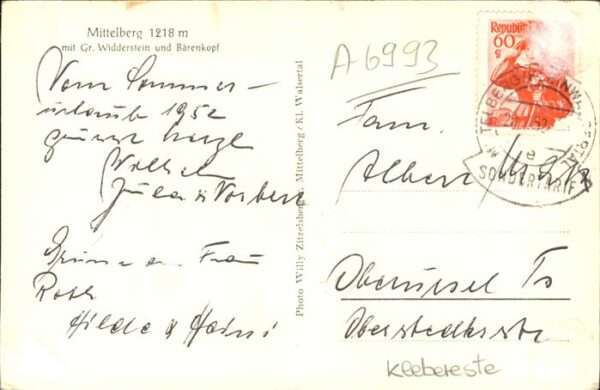 Mittelberg 1218 m
mit Gr. Widderstein und Bärenkopf
Vom Sommer-
urlaub 1952
grüsst herzl
Wilhelm
Jula & Norbert
Grüsse an Frau
Roth
Hilde & Heini
Photo Willy Zitzelsberger, Mittelberg / Kl. Walsertal
A 6993
Republik
60
g
SONDERTARIF
Fam.
Albert
Oberursel Ts
Oberstedterstr
Klebereste